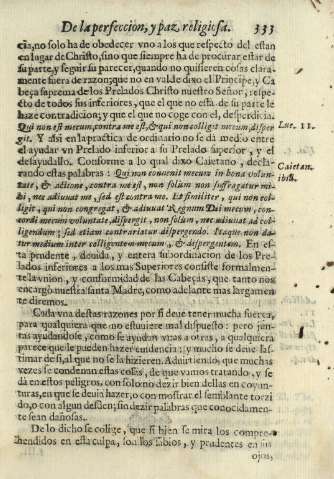 De la perfeccion, y paz religiosa. 333
cia, no solo ha de obedecer vno a los que respeto del estan
en lugar de Christo, sino que siempre ha de procurar estar de
su parte, y seguir su parecer, quando no quisieren cosas clara-
mente fuera de razon; que no en valde dixo el Principe, y Ca
beça suprema de los Prelados Christo nuestro Señor, respe-
cto de todos sus inferiores, que el que no está de su parte le
haze contradicion; y que el que no coge con el, desperdicia.
Qui non est mecum, contra me est, & qui non colligit mecum, disper
git. Y assi en la practica de ordinario no se dá medio entre
el ayudar vn Prelado inferior a su Prelado superior, y el
desayudallo. Conforme a lo qual dixo Caietano, decla-
rando estas palabras: Qui non conuenit mecum in bona volun-
tate, & actione, contra me est, non solùm non suffragatur mi-
hi, nec adiuuat me, sed est contra me. Et similiter, qui non col-
ligit, qui non congregat, & adiuuat Regnum Dei mecum, con-
cordi mecum voluntate, dispergit, non solùm, nec adiuuat ad col-
ligendum; sed etiam contrariatur dispergendo. Itaque non da-
tur medium inter colligentem mecum, & dispergentem. En es-
ta prudente, deuida, y entera subordinacion de los Pre-
lados inferiores a los mas Superiores consiste formalmen-
te la vnion, y conformidad de las Cabeças, que tanto nos
encargò nuestra santa Madre, como adelante mas largamen
te diremos.
Cada vna destas razones por si deue tener mucha fuerça,
para qualquiera que no estuuiere mal dispuesto: pero jun-
tas ayudandose, como se ayudan vnas a otras, a qualquiera
parece que le pueden hazer euidencia; y mucho se deue las-
timar de si, al que no se la hizieren. Aduirtiendo, que muchas
vezes se condenan estas cosas, de que vamos tratando, y se
dá en estos peligros, con solo no dezir bien dellas en coyun-
turas, en que se deuia hazer, o con mostrar el semblante torzi
do, o con algun desden, sin dezir palabras que conocidamen-
te sean dañosas.
De lo dicho se colige, que si bien se mira los compre-
hendidos en esta culpa, son los sabios, y prudentes en sus
ojos,
Luc. 11.
Caietan.
ibid.